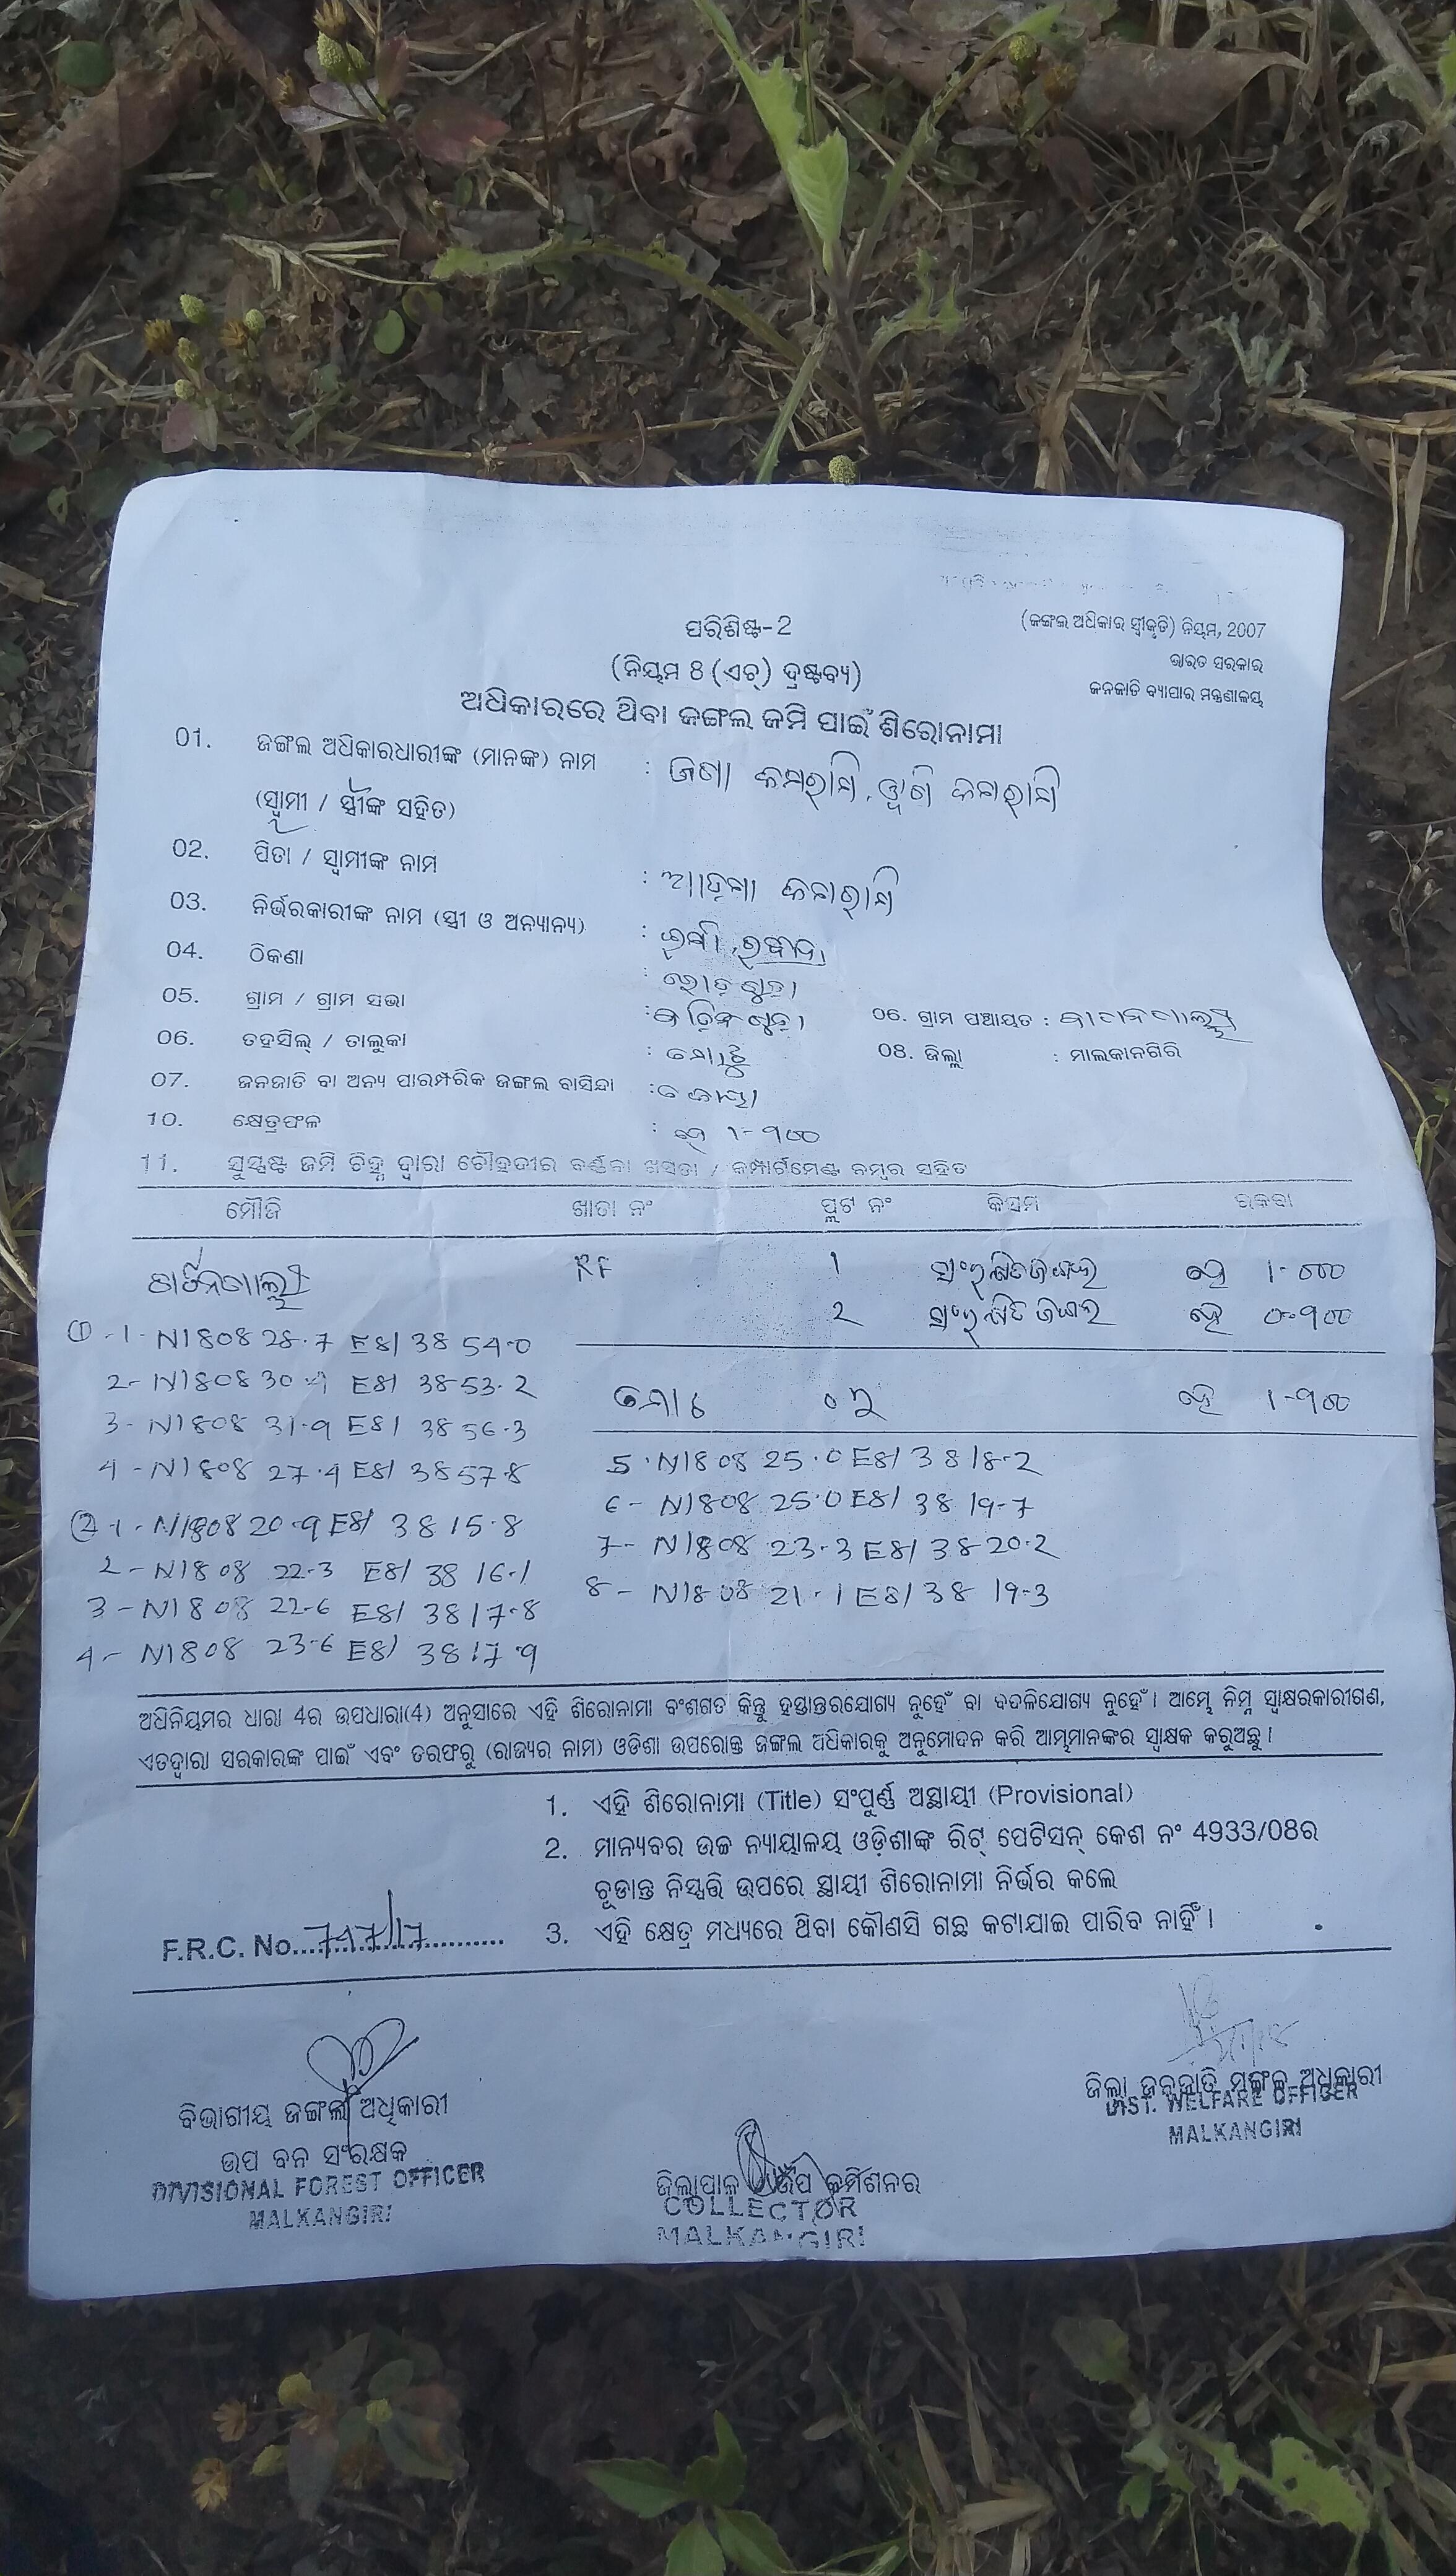 (ଜଙ୍ଗଲ ଅଧିକାର ସ୍ୱୀକୃତି) ନିୟମ, 2007
ଭାରତ ସରକାର
ଜନଜାତି ବ୍ୟାପାର ମନ୍ତ୍ରଣାଳୟ
ପରିଶିଷ୍ଟ-2
(ନିୟମ 8 (ଏଚ୍) ଦ୍ରଷ୍ଟବ୍ୟ)
ଅଧିକାରରେ ଥିବା ଜଙ୍ଗଲ ଜମି ପାଇଁ ଶିରୋନାମା
01. ଜଙ୍ଗଲ ଅଧିକାରଧାରୀଙ୍କ (ମାନଙ୍କ) ନାମ :
(ସ୍ୱାମୀ / ସ୍ତ୍ରୀଙ୍କ ସହିତ)
02. ପିତା / ସ୍ୱାମୀଙ୍କ ନାମ :
03. ନିର୍ଭରକାରୀଙ୍କ ନାମ (ସ୍ତ୍ରୀ ଓ ଅନ୍ୟାନ୍ୟ) :
04. ଠିକଣା :
05. ଗ୍ରାମ / ଗ୍ରାମ ସଭା : 06. ଗ୍ରାମ ପଞ୍ଚାୟତ :
06. ତହସିଲ୍ / ତାଲୁକା : 08. ଜିଲ୍ଲା : ମାଲକାନଗିରି
07. ଜନଜାତି ବା ଅନ୍ୟ ପାରମ୍ପରିକ ଜଙ୍ଗଲ ବାସିନ୍ଦା : କୋୟା
10. କ୍ଷେତ୍ରଫଳ : ହେ ୧-୩୦୦
11. ସୁସ୍ପଷ୍ଟ ଜମି ଚିହ୍ନ ଦ୍ୱାରା ଚୌହଦୀର ବର୍ଣ୍ଣନା ଖସଡା / କମ୍ପାର୍ଟମେଣ୍ଟ ନମ୍ବର ସହିତ
ମୌଜି ଖାତା ନଂ ପ୍ଲଟ ନଂ କିସମ ରକବା
RF ୧ ସଂରକ୍ଷିତ ଜଙ୍ଗଲ ହେ ୧-୦୦୦
୨ ସଂରକ୍ଷିତ ଜଙ୍ଗଲ ହେ ୦-୩୦୦
① -1- N1808 28.7 E81 38 54.0
2- N1808 30.4 E81 3853.2
ମୋଟ ୦୨ ହେ ୧-୩୦୦
3- N1808 31.9 E81 3856.3
4- N1808 27.4 E81 3857.8
② -1- N1808 20.9 E81 38 15.8
2- N1808 22.3 E81 38 16.1
3- N1808 22.6 E81 38 17.8
4- N1808 23.6 E81 38 17.9
5. N1808 25.0 E81 38 18.2
6- N1808 25.0 E81 38 19.7
7- N1808 23.3 E81 38 20.2
8- N1808 21.1 E81 38 19.3
ଅଧିନିୟମର ଧାରା 4ର ଉପଧାରା(4) ଅନୁସାରେ ଏହି ଶିରୋନାମା ବଂଶଗତ କିନ୍ତୁ ହସ୍ତାନ୍ତରଯୋଗ୍ୟ ନୁହେଁ ବା ବଦଳିଯୋଗ୍ୟ ନୁହେଁ। ଆମ୍ଭେ ନିମ୍ନ ସ୍ୱାକ୍ଷରକାରୀଗଣ,
ଏତଦ୍ୱାରା ସରକାରଙ୍କ ପାଇଁ ଏବଂ ତରଫରୁ (ରାଜ୍ୟର ନାମ) ଓଡିଶା ଉପରୋକ୍ତ ଜଙ୍ଗଲ ଅଧିକାରକୁ ଅନୁମୋଦନ କରି ଆମ୍ଭମାନଙ୍କର ସ୍ୱାକ୍ଷକ କରୁଅଛୁ।
1. ଏହି ଶିରୋନାମା (Title) ସଂପୂର୍ଣ୍ଣ ଅସ୍ଥାୟୀ (Provisional)
2. ମାନ୍ୟବର ଉଚ୍ଚ ନ୍ୟାୟାଳୟ ଓଡ଼ିଶାଙ୍କ ରିଟ୍ ପେଟିସନ୍ କେଶ ନଂ 4933/08ର
ଚୂଡାନ୍ତ ନିସ୍ପତ୍ତି ଉପରେ ସ୍ଥାୟୀ ଶିରୋନାମା ନିର୍ଭର କଲେ
3. ଏହି କ୍ଷେତ୍ର ମଧ୍ୟରେ ଥିବା କୌଣସି ଗଛ କଟାଯାଇ ପାରିବ ନାହିଁ।
F.R.C. No. 747/17
ବିଭାଗୀୟ ଜଙ୍ଗଲ ଅଧିକାରୀ
ଉପ ବନ ସଂରକ୍ଷକ
DIVISIONAL FOREST OFFICER
MALKANGIRI
ଜିଲ୍ଲାପାଳ ଉପ କମିଶନର
COLLECTOR
MALKANGIRI
ଜିଲ୍ଲା ଜନଜାତି ମଙ୍ଗଳ ଅଧିକାରୀ
DIST. WELFARE OFFICER
MALKANGIRI